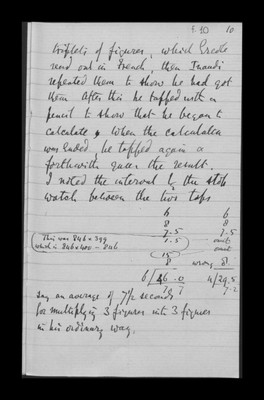 f. 10 10
triplets of figures, which Crede
read out in French, then Inaudi
repeated them to show he had got
them After this he tapped with a
pencil to show that he began to
calculate & when the calculation
was ended he tapped again &
forthwith gave the result.
I noted the interval by the stop
watch between the two taps
6 6
8 8
7.5 7.5
(This was 846 × 399 1.5 omit
which is 846×400 – 846) (15) omit
8 wrong 8
6/46.0 4/29.5
7.7 7.2
say an average of 7½ seconds
for multiplying 3 figures into 3 figures
in his ordinary way.